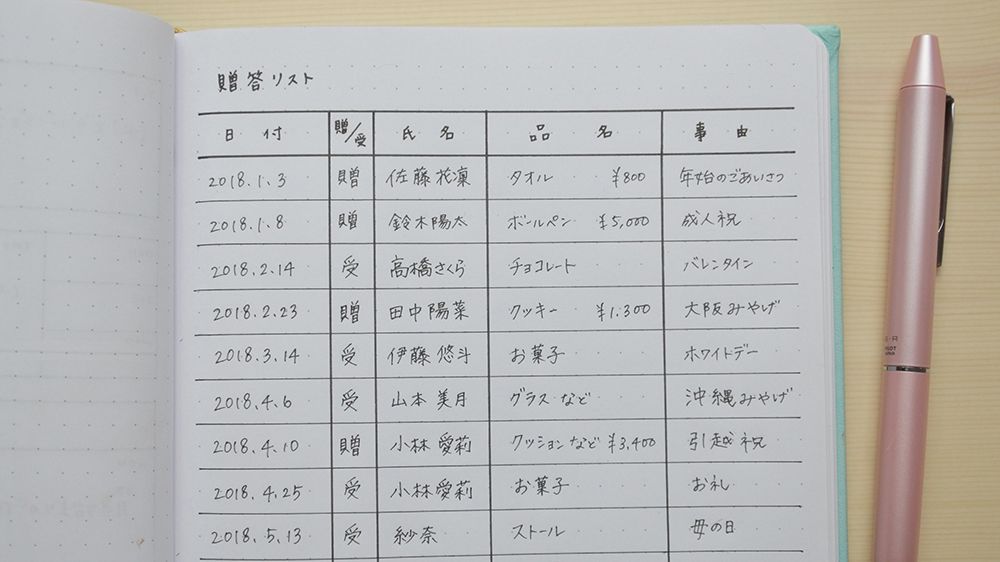 贈答リスト
日付 贈/受 氏名 品名 事由
2018.1.3 贈 佐藤花凜 タオル ¥800 年始のごあいさつ
2018.1.8 贈 鈴木陽太 ボールペン ¥5,000 成人祝
2018.2.14 受 高橋さくら チョコレート バレンタイン
2018.2.23 贈 田中陽菜 クッキー ¥1.300 大阪みやげ
2018.3.14 受 伊藤悠斗 お菓子 ホワイトデー
2018.4.6 受 山本美月 グラスなど 沖縄みやげ
2018.4.10 贈 小林愛莉 クッションなど ¥3,400 引越祝
2018.4.25 受 小林愛莉 お菓子 お礼
2018.5.13 受 紗奈 ストール 母の日